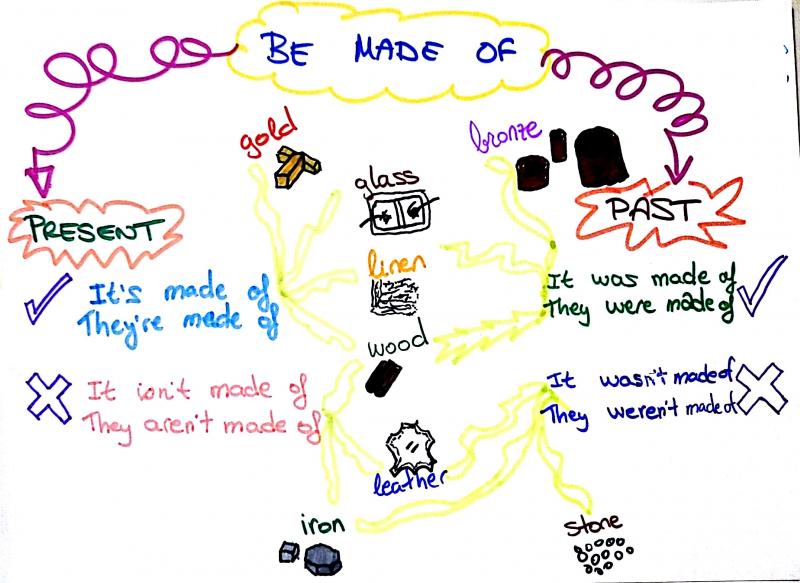 BE MADE OF
gold
bronze
glass
PRESENT
PAST
linen
It's made of
They're made of
It was made of
They were made of
wood
It isn't made of
They aren't made of
It wasn't made of
They weren't made of
leather
iron
stone